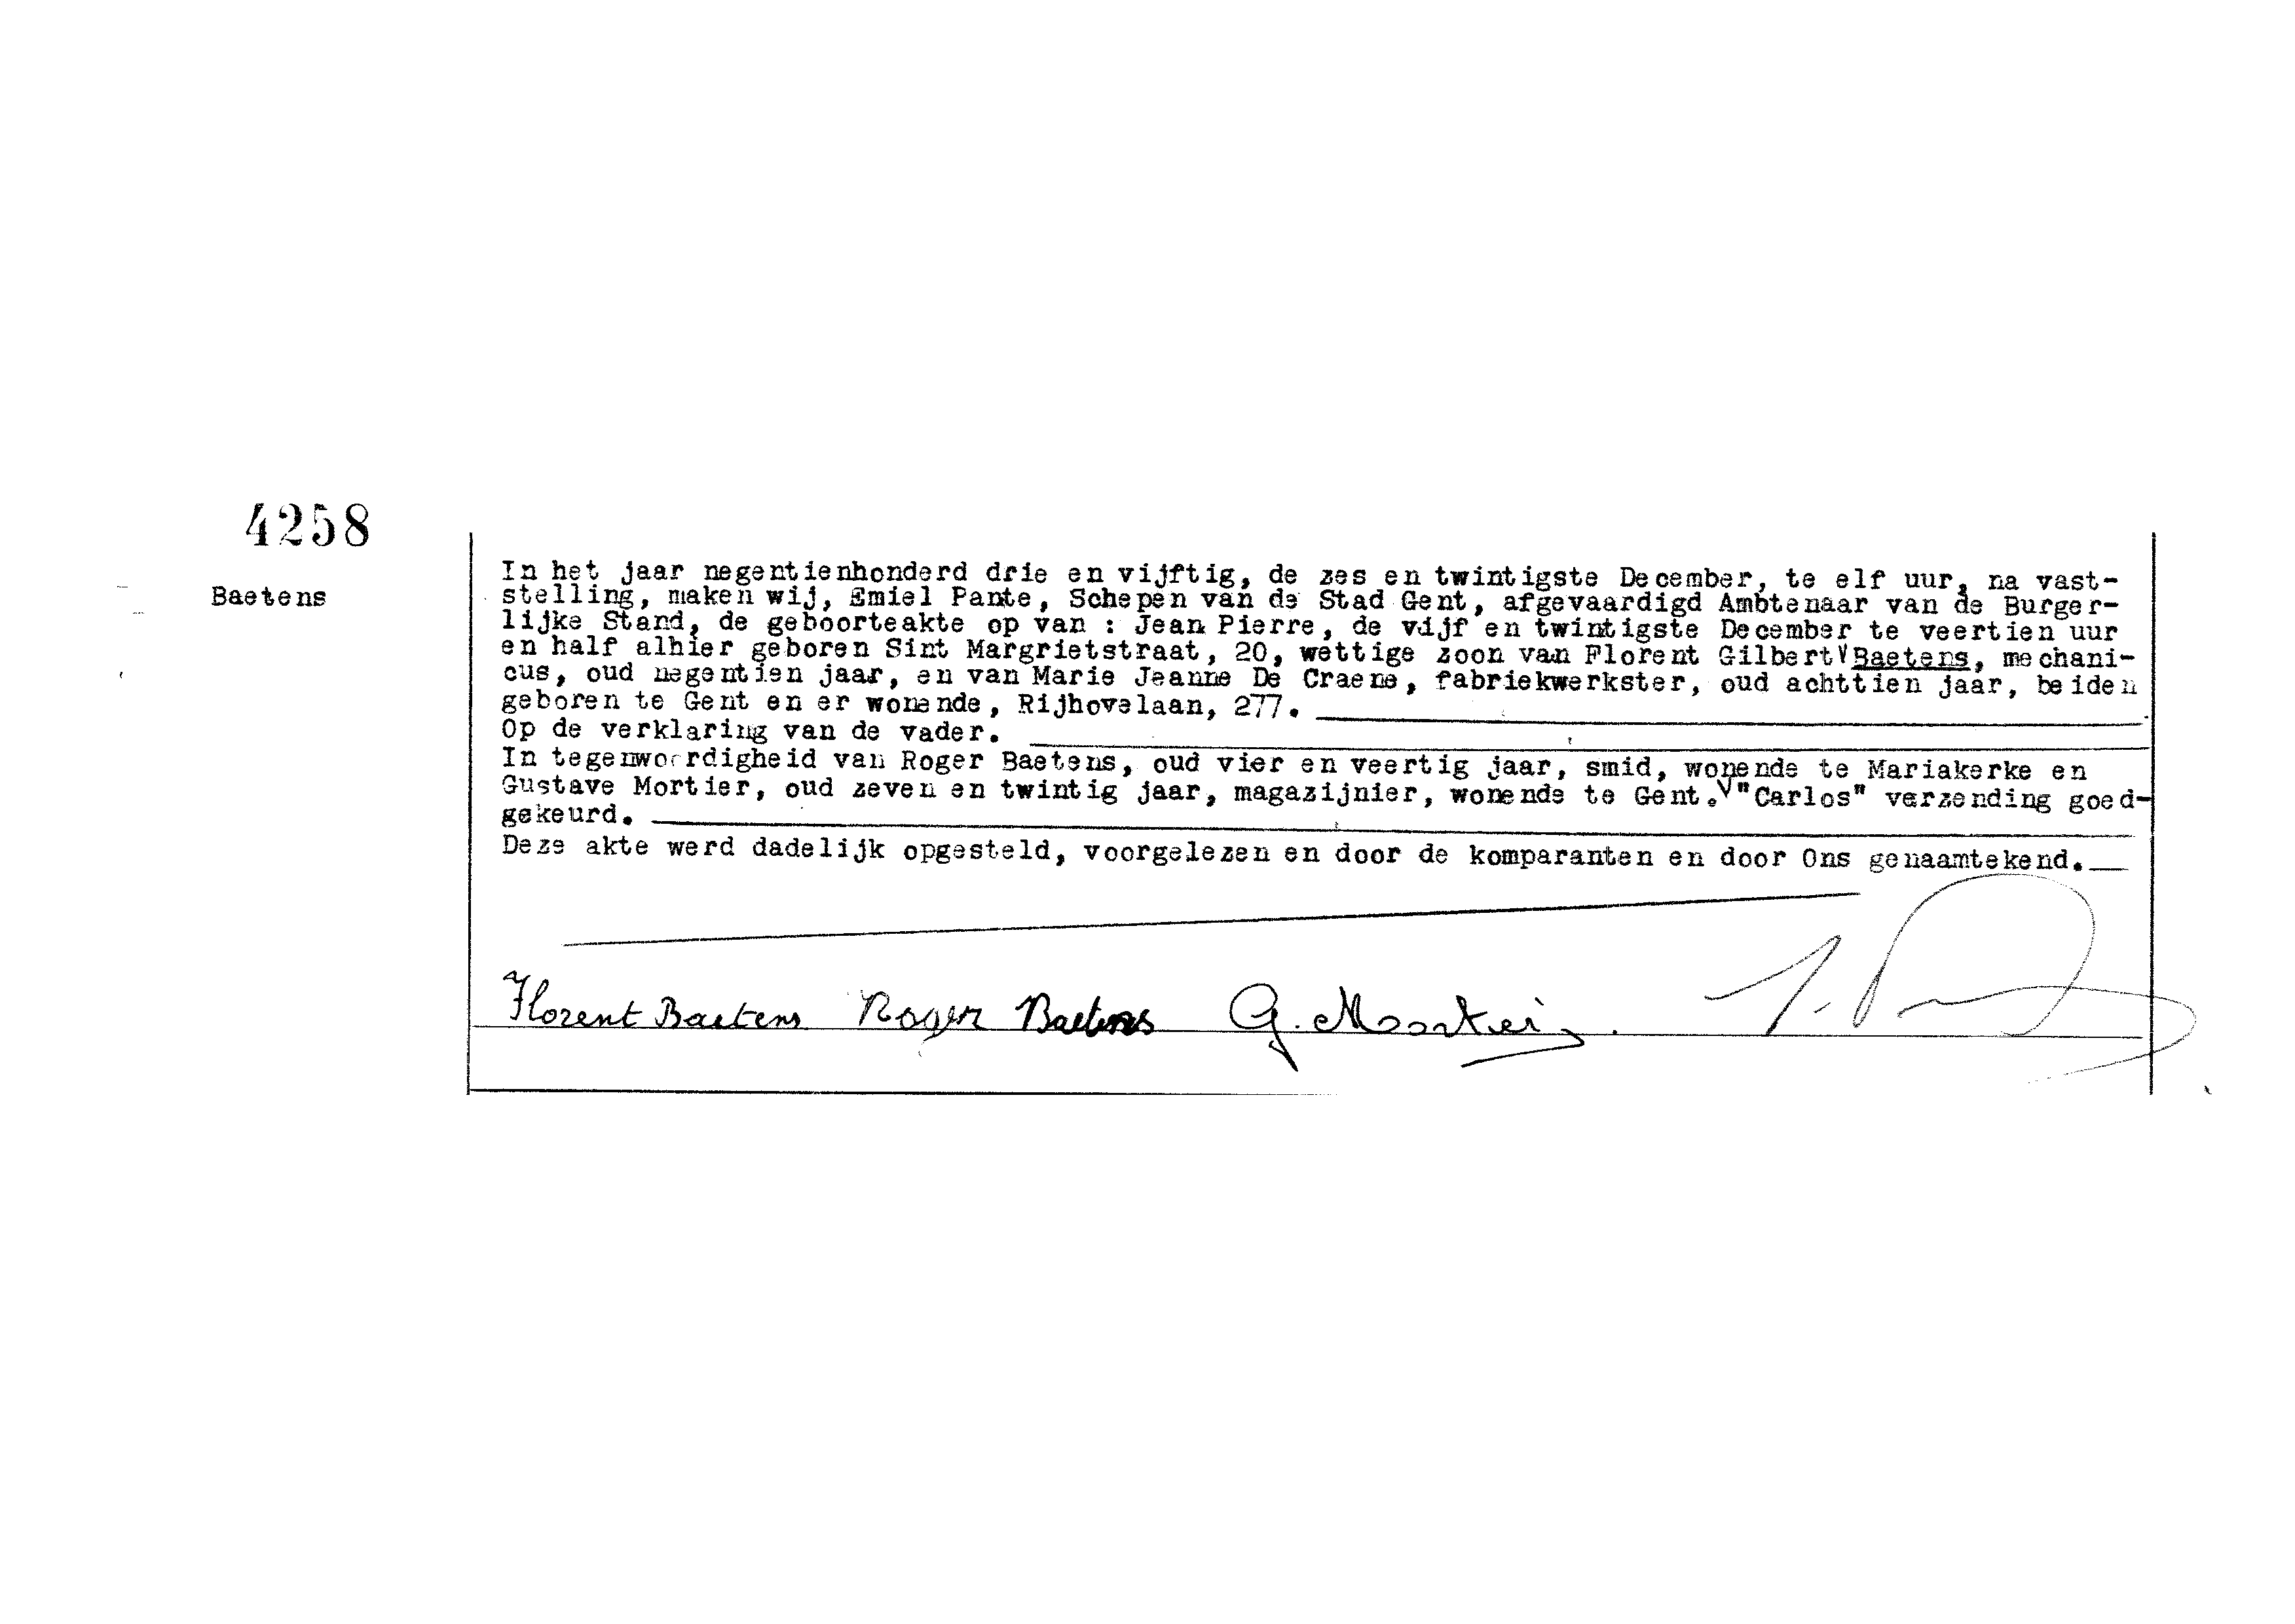 4258
Baetens
In het jaar negentienhonderd drie en vijftig, de zes en twintigste December, te elf uur, na vast-
stelling, maken wij, Emiel Pante, Schepen van de Stad Gent, afgevaardigd Ambtenaar van de Burger-
lijke Stand, de geboorteakte op van : Jean Pierre, de vijf en twintigste December te veertien uur
en half alhier geboren Sint Margrietstraat, 20, wettige zoon van Florent Gilbert V Baetens, mechani-
cus, oud negentien jaar, en van Marie Jeanne De Craene, fabriekwerkster, oud achttien jaar, beiden
geboren te Gent en er wonende, Rijhovelaan, 277.
Op de verklaring van de vader.
In tegenwoordigheid van Roger Baetens, oud vier en veertig jaar, smid, wonende te Mariakerke en
Gustave Mortier, oud zeven en twintig jaar, magazijnier, wonende te Gent. V "Carlos" verzending goed-
gekeurd.
Deze akte werd dadelijk opgesteld, voorgelezen en door de komparanten en door Ons genaamtekend.
Florent Baetens Roger Baetens G. Mortier